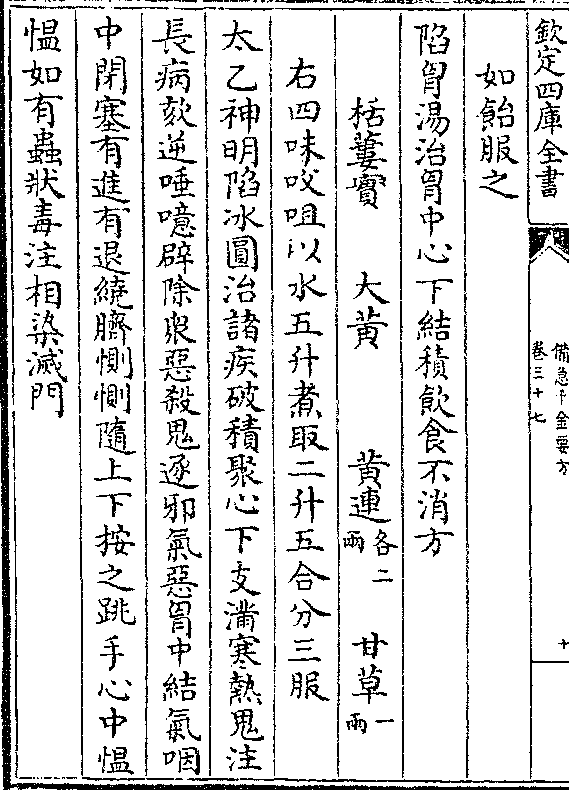 欽定四庫全書
備急千金要方
卷三十七
十
如飴服之
陷胷湯治胷中心下結積飲食不消方
栝蔞實　大黃　黃連各二兩　甘草一兩
右四味㕮咀以水五升煮取二升五合分三服
太乙神明陷冰圓治諸疾破積聚心下支滿寒熱鬼注
長病欬逆唾噫辟除衆惡殺鬼逐邪氣惡胷中結氣咽
中閉塞有進有退繞臍惻惻隨上下按之跳手心中愠
愠如有蟲狀毒注相染滅門